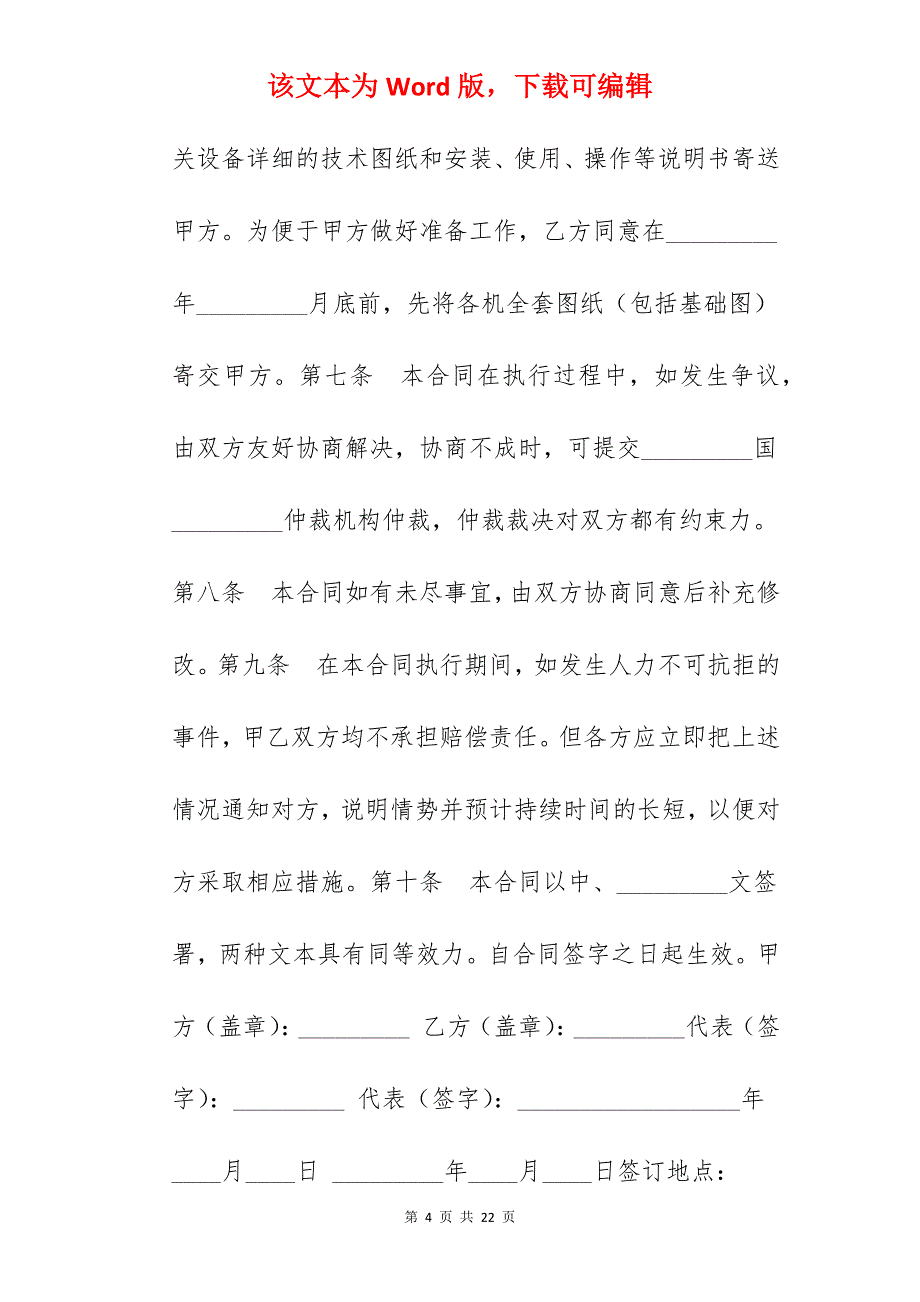 该文本为 Word 版，下载可编辑
关设备详细的技术图纸和安装、使用、操作等说明书寄送
甲方。为便于甲方做好准备工作，乙方同意在_________
年_________月底前，先将各机全套图纸（包括基础图）
寄交甲方。第七条　本合同在执行过程中，如发生争议，
由双方友好协商解决，协商不成时，可提交_________国
_________仲裁机构仲裁，仲裁裁决对双方都有约束力。
第八条　本合同如有未尽事宜，由双方协商同意后补充修
改。第九条　在本合同执行期间，如发生人力不可抗拒的
事件，甲乙双方均不承担赔偿责任。但各方应立即把上述
情况通知对方，说明情势并预计持续时间的长短，以便对
方采取相应措施。第十条　本合同以中、_________文签
署，两种文本具有同等效力。自合同签字之日起生效。甲
方（盖章）：_________ 乙方（盖章）：_________代表（签
字）：_________ 代表（签字）：__________________年
____月____日 _________年____月____日签订地点：
第 4 页 共 22 页